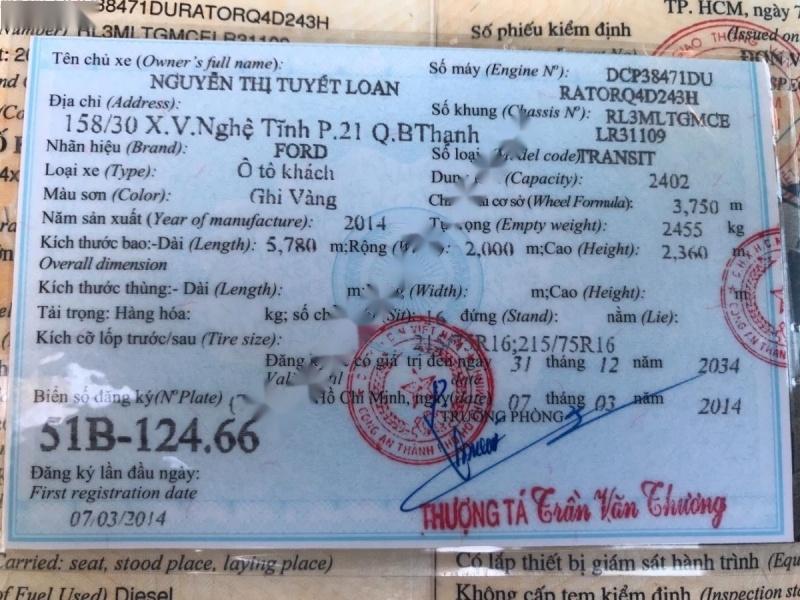 38471DURATORQ4D243H
RL3MLTGMCELR31109
Số phiếu kiểm định
TP. HCM, ngày
(Issued on
ĐƠN V
Tên chủ xe (Owner's full name):
NGUYỄN THỊ TUYẾT LOAN
Địa chỉ (Address):
158/30 X.V.Nghệ Tĩnh P.21 Q.BThạnh
Nhãn hiệu (Brand): FORD
Loại xe (Type): Ô tô khách
Màu sơn (Color): Ghi Vàng
Năm sản xuất (Year of manufacture): 2014
Số máy (Engine Nº): DCP38471DU
RATORQ4D243H
Số khung (Chassis Nº): RL3MLTGMCE
LR31109
Số loại Model code) TRANSIT
Dung (Capacity): 2402
cơ sở (Wheel Formula): 3,750 m
Tự trọng (Empty weight): 2455 kg
Kích thước bao:-Dài (Length): 5,780 m;Rộng 2,000 m;Cao (Height): 2,360 m
Overall dimension
Kích thước thùng:- Dài (Length): m; (Width): m;Cao (Height): m
Tải trọng: Hàng hóa: kg; số chỗ Sit): 16 đứng (Stand): nằm (Lie):
Kích cỡ lốp trước/sau (Tire size): 215/75R16;215/75R16
Đăng ký có giá trị đến ngày 31 tháng 12 năm 2034
date
Biển số đăng ký(Nº Plate)
51B-124.66
Hồ Chí Minh, ngày(date) 07 tháng 03 năm 2014
TRƯỞNG PHÒNG
Đăng ký lần đầu ngày:
First registration date
07/03/2014
THƯỢNG TÁ Trần Văn Thương
Carried: seat, stood place, laying place)
of Fuel Used) Diesel
Có lắp thiết bị giám sát hành trình (Equ
Không cấp tem kiểm định (Inspection st